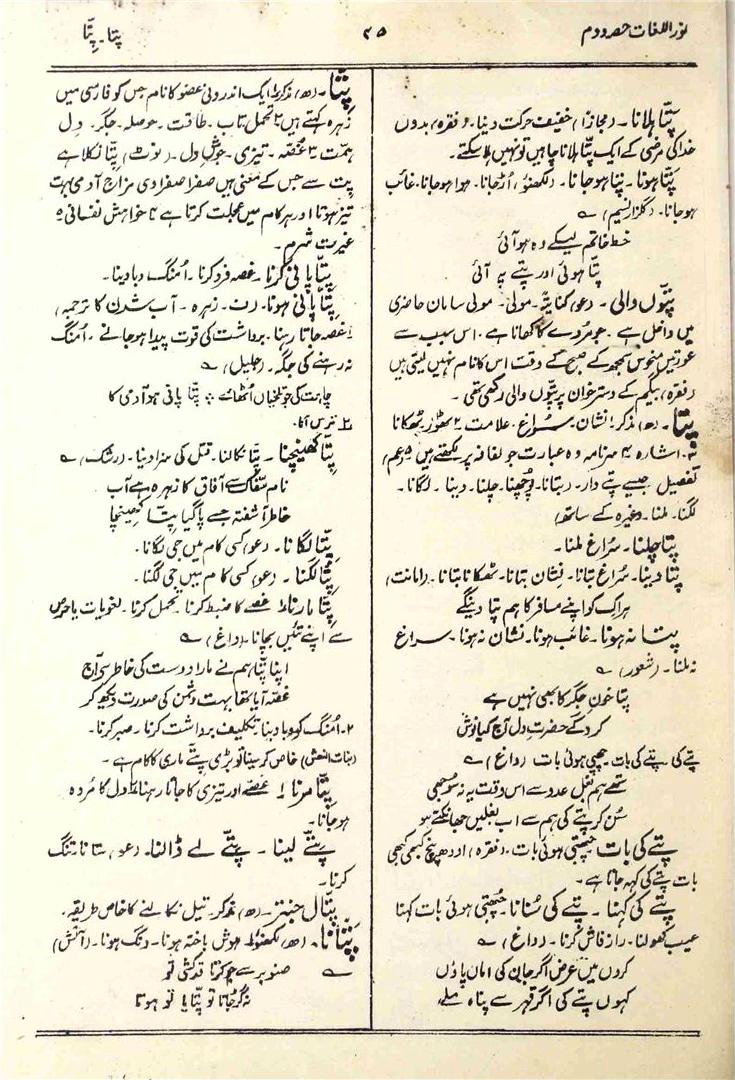 نور اللغات حصہ دوم
۲۵
پتا۔ پِتّا
پتّا ہلانا۔ (مجازاً) خفیف حرکت دینا۔ (فقرہ) بدوں
خدا کی مرضی کے ایک پتّا ہلانا چاہیں تو نہیں ہلا سکتے۔
پتّا ہونا۔ پتّا ہو جانا۔ (لکھنؤ) اُڑ جانا۔ ہوا ہو جانا۔ غائب
ہو جانا۔ (گلزار نسیم) ؎
خط خاتم لیکے وہ ہوائی
پتّا ہوئی اور پتے پر آئی
پتّوں والی۔ (عو) کنایۃً۔ مولی۔ مولی سامان حاضری
میں داخل ہے۔ جو مُردے کا کھانا ہے۔ اس سبب سے
عورتیں منحوس سمجھ کے صبح کے وقت اس کا نام نہیں لیتی ہیں
(فقرہ) بیگم کے دسترخوان پر پتّوں والی رکھی تھی۔
پتا۔ (ھ) مذکر۔ نشان۔ سُراغ۔ علامت ۲ ٹھور ٹھکانا
۳۔ اشارہ ۴ سرنامہ وہ عبارت جو لفافہ پر لکھتے ہیں ۵ (عم)
تفصیل جیسے پتے دار۔ (بتانا۔ پوچھنا۔ چلنا۔ دینا۔ لگانا۔
لگنا۔ ملنا۔ وغیرہ کے ساتھ)
پتا چلنا۔ سُراغ ملنا۔
پتا دینا۔ سُراغ بتانا۔ نِشان بتانا۔ ٹھکانا بتانا۔ (امانت)
ہر اک کو اپنے مسافر کا ہم پتا دینگے
پتا نہ ہونا۔ غائب ہونا۔ نشان نہ ہونا۔ سراغ
نہ ملنا۔ (شعور) ؎
پتا خون جگر کا بھی نہیں ہے
کرو گے حضرتِ دل آج کیا نوش
پتے کی۔ پتے کی بات۔ چھپی ہوئی بات (داغ) ؎
تھے ہم بغل عدو سے اس وقت یہ نہ سوجھی
سُن کر پتے کی ہم سے اب بغلیں جھانکتے ہو
پتے کی بات۔ چھپی ہوئی بات۔ (فقرہ) اودھ پنچ کبھی کبھی
بات پتے کی کہہ جاتا ہے۔
پتے کی کہنا۔ پتے کی سُنانا۔ چھپی ہوئی بات کہنا
عیب کھولنا۔ راز فاش کرنا۔ (داغ) ؎
کروں میں عرض اگر جان کی اماں پاؤں
کہوں پتے کی اگر قہر سے پناہ ملے
پِتّا۔ (ھ) مذکر ۱ ایک اندرونی عضو کا نام جس کو فارسی میں
زہرہ کہتے ہیں ۲ تحمل تاب۔ طاقت۔ حوصلہ۔ جگر۔ دل
ہمت ۳ غصّہ۔ تیزی۔ جوشِ دل۔ (نوٹ) پِتّا نکلا ہے
پت سے جس کے معنی ہیں صفرا صفراوی مزاج آدمی بہت
تیز ہوتا اور ہر کام میں عجلت کرتا ہے ۴ خواہش نفسانی ۵
غیرت شرم۔
پِتّا پانی کرنا۔ غصہ فرو کرنا۔ اُمنگ دبا دینا۔
پِتّا پانی ہونا۔ (ف۔ زہرہ۔ آب شدن کا ترجمہ)
۱ غصہ جاتا رہنا۔ برداشت کی قوت پیدا ہو جانے۔ اُمنگ
نہ رہنے کی جگہ۔ (جلیل) ؎
چاہت کی جو تلخیاں اُٹھائے ؞ پتّا پانی ہو آدمی کا
۲ ترس آنا۔
پِتّا کھینچنا۔ پتّا نکالنا۔ قتل کی سزا دینا۔ (رشک) ؎
نام سفّاک سے آفاق کا زہرہ ہے آب
خاطر آشفتہ جسے پا گیا پِتّا کھینچا
پِتّا لگانا۔ (عو) کسی کام میں جی لگانا۔
پِتّا لگنا۔ (عو) کسی کام میں جی لگنا۔
پِتّا مارنا ۱ غصے کا ضبط کرنا۔ تحمل کرنا۔ لغویات یا حرص
سے اپنے تئیں بچانا۔ (داغ) ؎
اپنا پِتّا ہم نے مارا دوست کی خاطر سے آج
غصّہ آیا تھا بہت دشمن کی صورت دیکھ کر
۲۔ اُمنگ کو دبا دینا۔ تکلیف برداشت کرنا۔ صبر کرنا۔
(بنات النعش) خاص کر سینا تو بڑی پتّے ماری کا کام ہے۔
پِتّا مرنا ۱ غصّے اور تیزی کا جاتا رہنا ۲ دل کا مُردہ
ہو جانا۔
پِتّے لینا۔ پِتّے لے ڈالنا۔ (عو) ستانا تنگ
کرنا۔
پتال جنتر۔ (ھ) مذکر۔ تیل نکالنے کا خاص طریقہ۔
پتّانا۔ (ھ) لکھنؤ۔ ہوش باختہ ہونا۔ دنگ ہونا۔ (آتش)
؎ صنوبر سے جو کرتا قد کشی تو
نہ گر جاتا تو پتّایا تو ہوتا